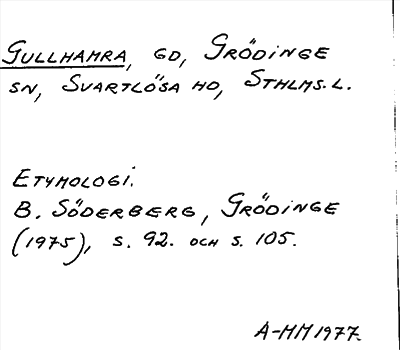 GULLHAMRA, GD, GRÖDINGE
SN, SVARTLÖSA HD, STHLMS.L.
ETYMOLOGI.
B. SÖDERBERG, GRÖDINGE
(1975), S. 92. OCH S. 105.
A-MM 1977.